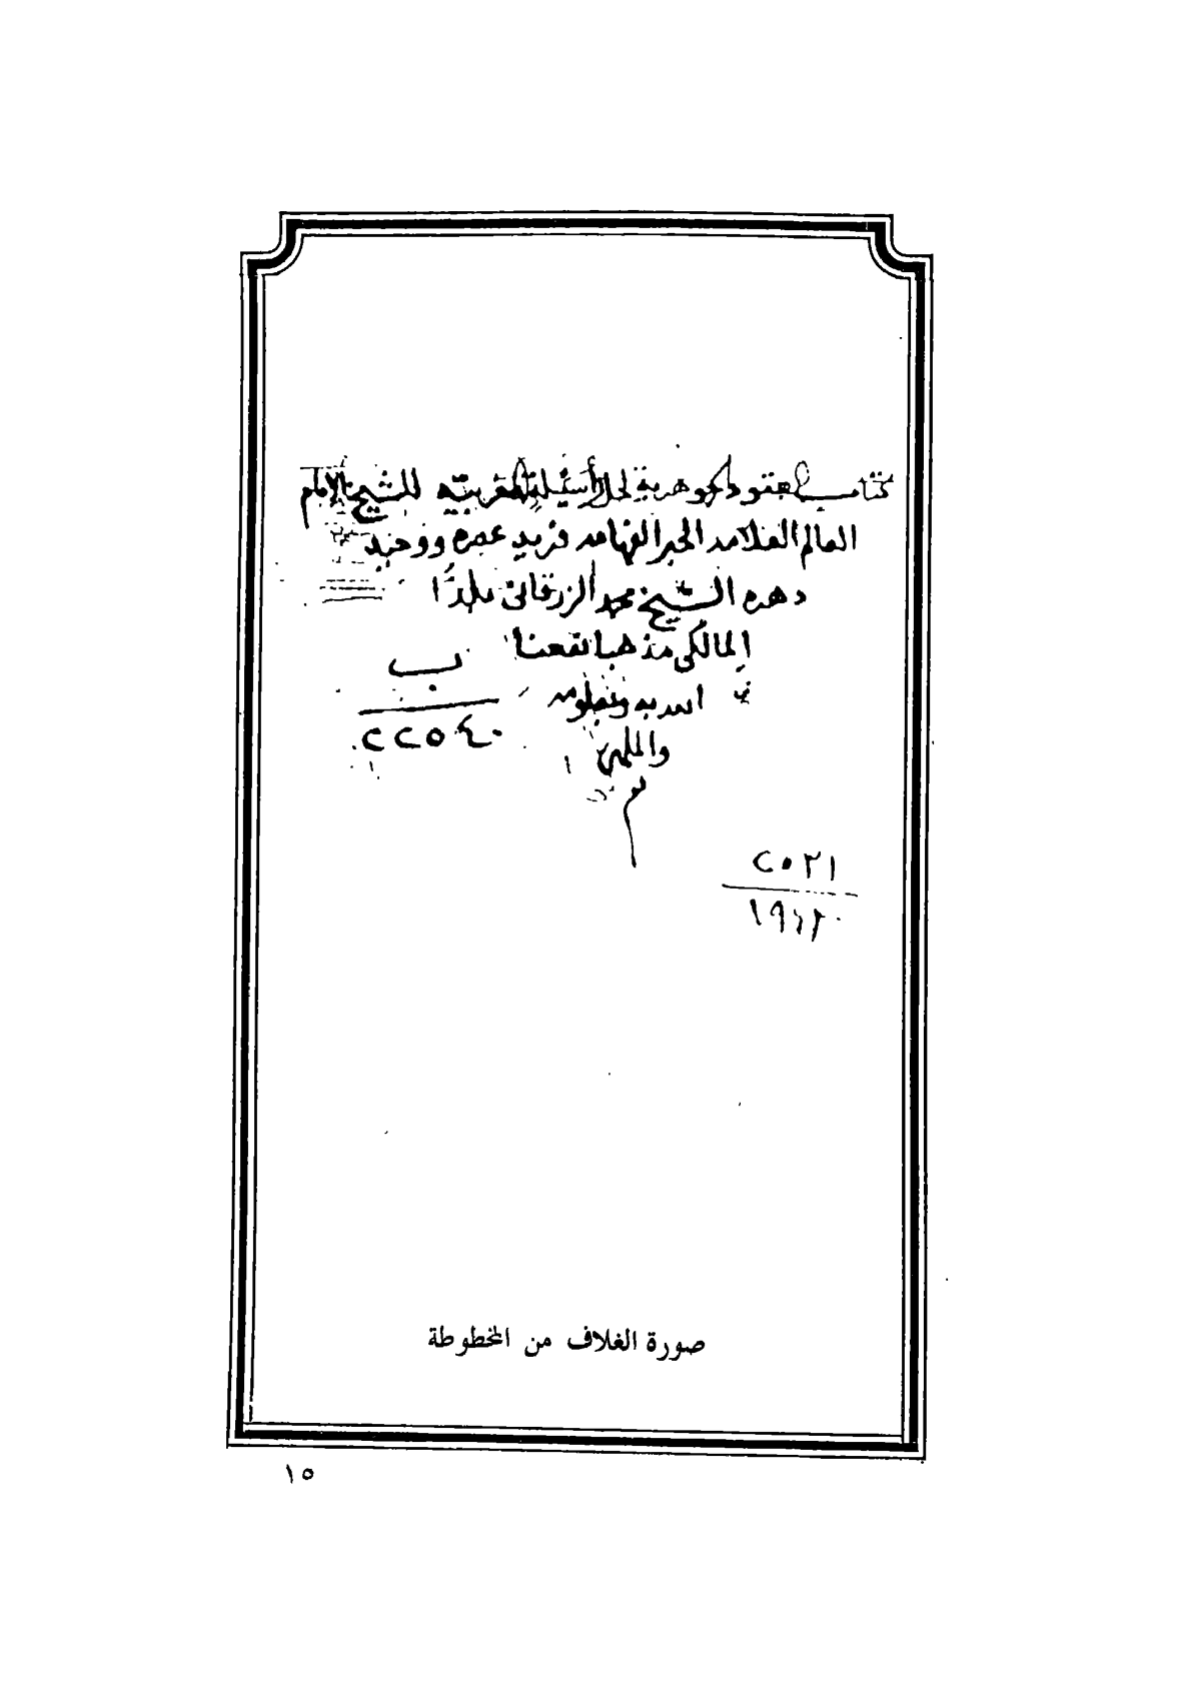 كتاب العقود الجوهرية لحل الأسئلة المغربيه للشيخ الامام
العالم العلامه الحبر الفهامه فريد عصره ووحيد
دهره الشيخ محمد الزرقاني بلدًا
المالكي مذهبا نفعنا
الله به وبعلومه
والمسلمين
م
ب
٢٢٥٤٠
٢٥٣١
صورة الغلاف من المخطوطة
١٥